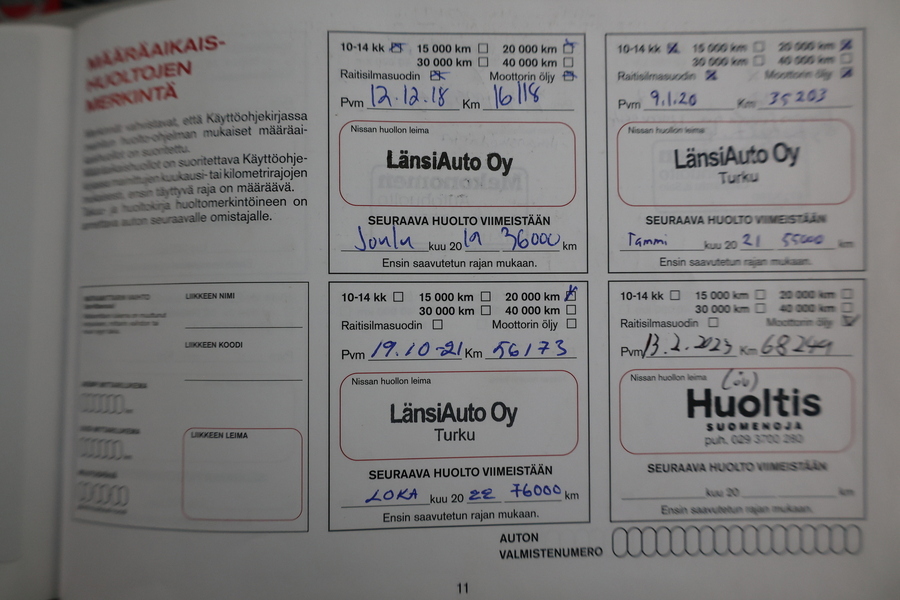 MÄÄRÄAIKAIS-
HUOLTOJEN
MERKINTÄ
Merkinnät vahvistavat, että Käyttöohjekirjassa
huolto-ohjelman mukaiset määräai-
on suoritettu.
Määräaikaishuollot on suoritettava Käyttöohje-
kuukausi- tai kilometrirajojen
mukaisesti, ensin täyttyvä raja on määräävä.
Takuu- ja huoltokirja huoltomerkintöineen on
annettava auton seuraavalle omistajalle.
10-14 kk 15 000 km 20 000 km
30 000 km 40 000 km
Raitisilmasuodin Moottorin öljy
Pvm 12.12.18 Km 16118
Nissan huollon leima
LänsiAuto Oy
SEURAAVA HUOLTO VIIMEISTÄÄN
Joulu kuu 20 19 36000 km
Ensin saavutetun rajan mukaan.
10-14 kk 15 000 km 20 000 km
30 000 km 40 000 km
Raitisilmasuodin Moottorin öljy
Pvm 9.1.20 Km 35203
Nissan huollon leima
LänsiAuto Oy
Turku
SEURAAVA HUOLTO VIIMEISTÄÄN
Tammi kuu 20 21 55000 km
Ensin saavutetun rajan mukaan.
LIIKKEEN NIMI
LIIKKEEN KOODI
LIIKKEEN LEIMA
10-14 kk 15 000 km 20 000 km
30 000 km 40 000 km
Raitisilmasuodin Moottorin öljy
Pvm 19.10-21 Km 56173
Nissan huollon leima
LänsiAuto Oy
Turku
SEURAAVA HUOLTO VIIMEISTÄÄN
LOKA kuu 20 22 76000 km
Ensin saavutetun rajan mukaan.
10-14 kk 15 000 km 20 000 km
30 000 km 40 000 km
Raitisilmasuodin Moottorin öljy
Pvm 13.2.2023 Km 68249
Nissan huollon leima
Huoltis
SUOMENOJA
puh. 029 3700 280
SEURAAVA HUOLTO VIIMEISTÄÄN
kuu 20 km
Ensin saavutetun rajan mukaan.
AUTON
VALMISTENUMERO
11